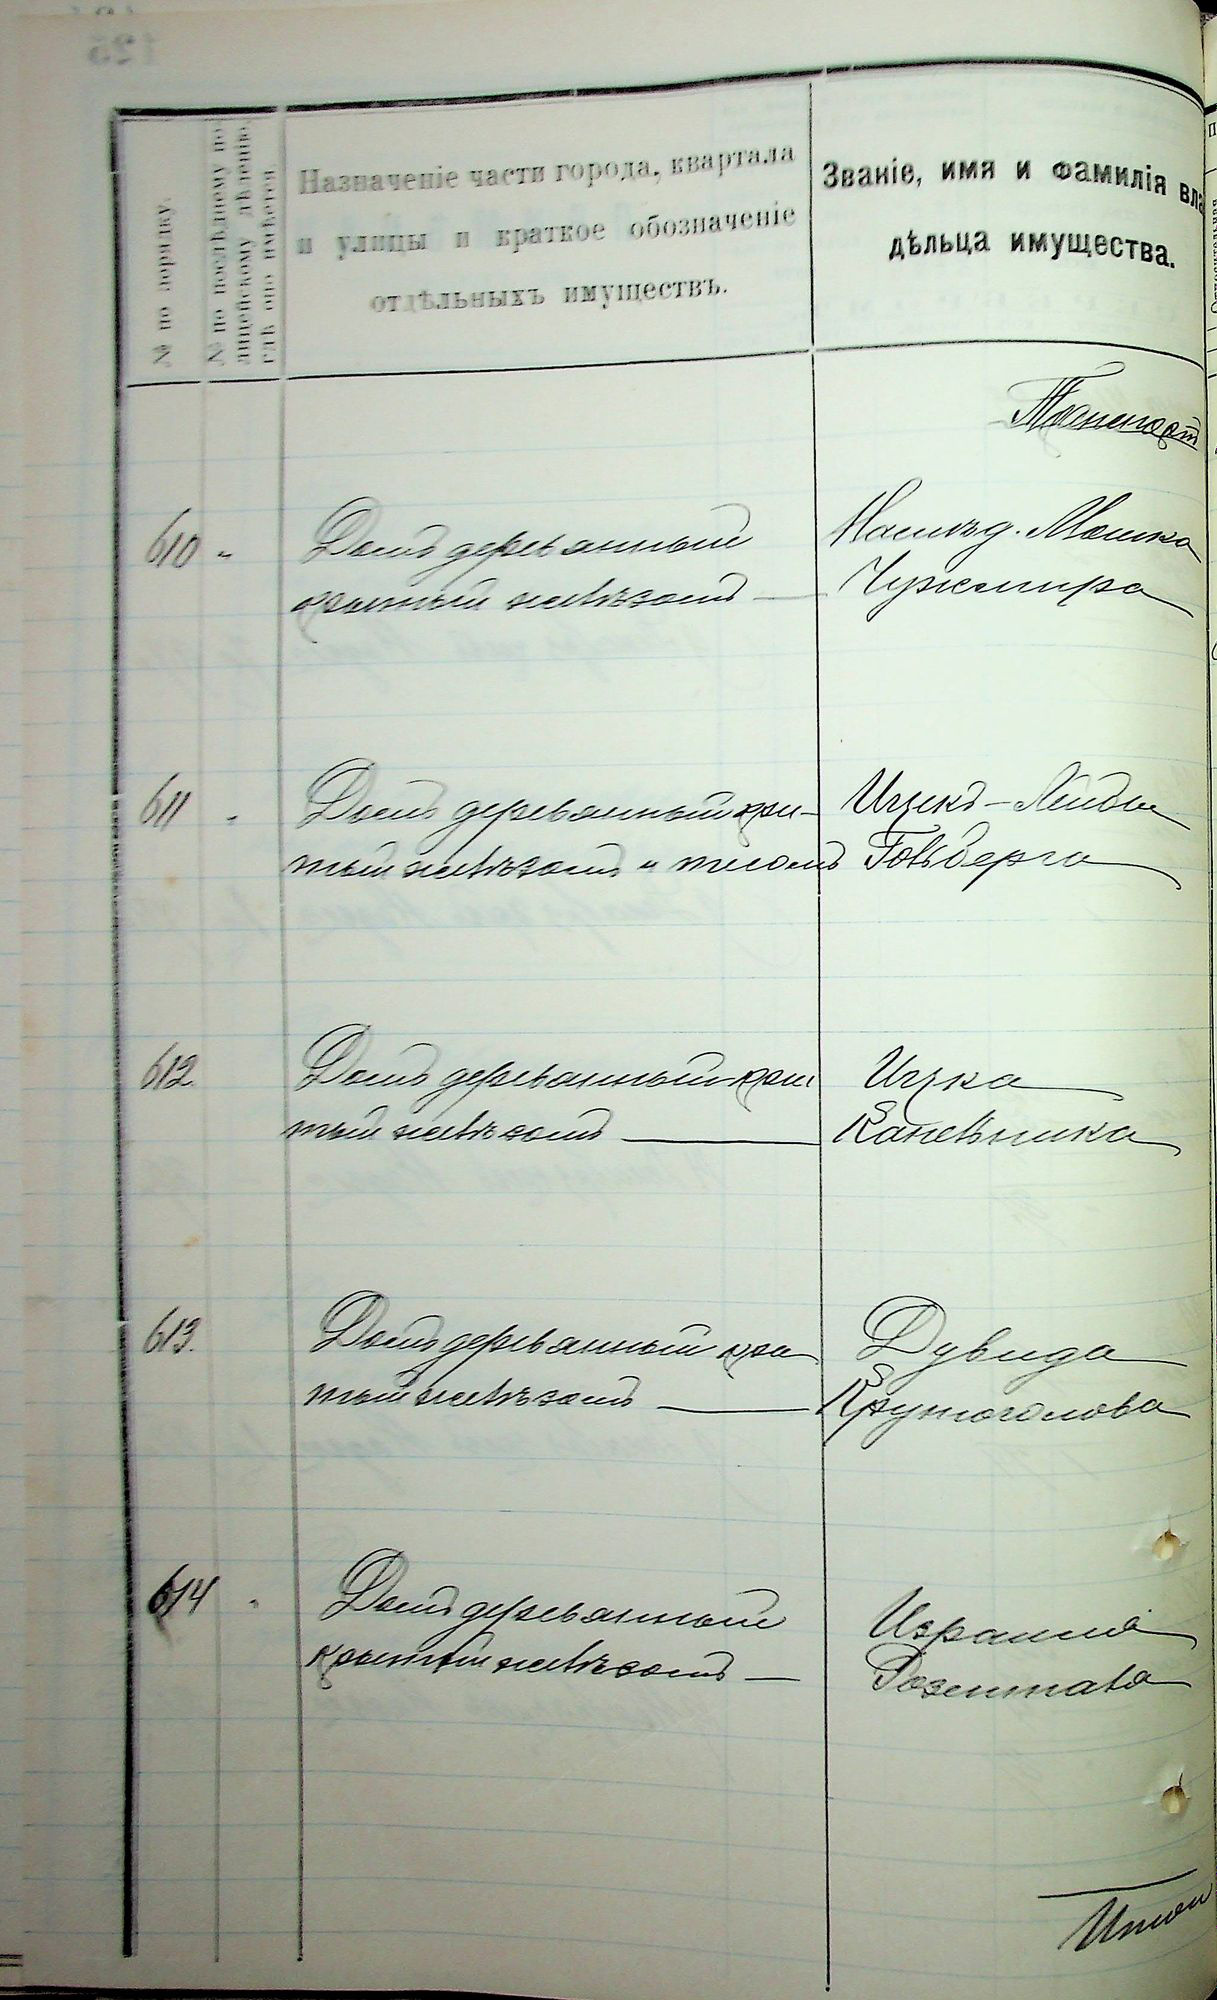 № по порядку.
№ по послѣднему по-
лицейскому дѣленію,
гдѣ оно имѣется.
Назначеніе части города, квартала
и улицы и краткое обозначеніе
отдѣльныхъ имуществъ.
Званіе, имя и фамилія вла
дѣльца имущества.
Транспортъ
610 „ Домъ деревянный
крытый желѣзомъ —
Наслѣд. Мошка
Чужемира
611 „ Домъ деревянный кры-
тый желѣзомъ и тесомъ
Ицекъ-Лейбы
Гольберга
612 Домъ деревянный кры
тый желѣзомъ —
Ицка
Капельника
613. Домъ деревянный кры
тый желѣзомъ —
Дувида
Круглоголова
614 „ Домъ деревянный
крытый желѣзомъ —
Израиля
Розенталя
Итого